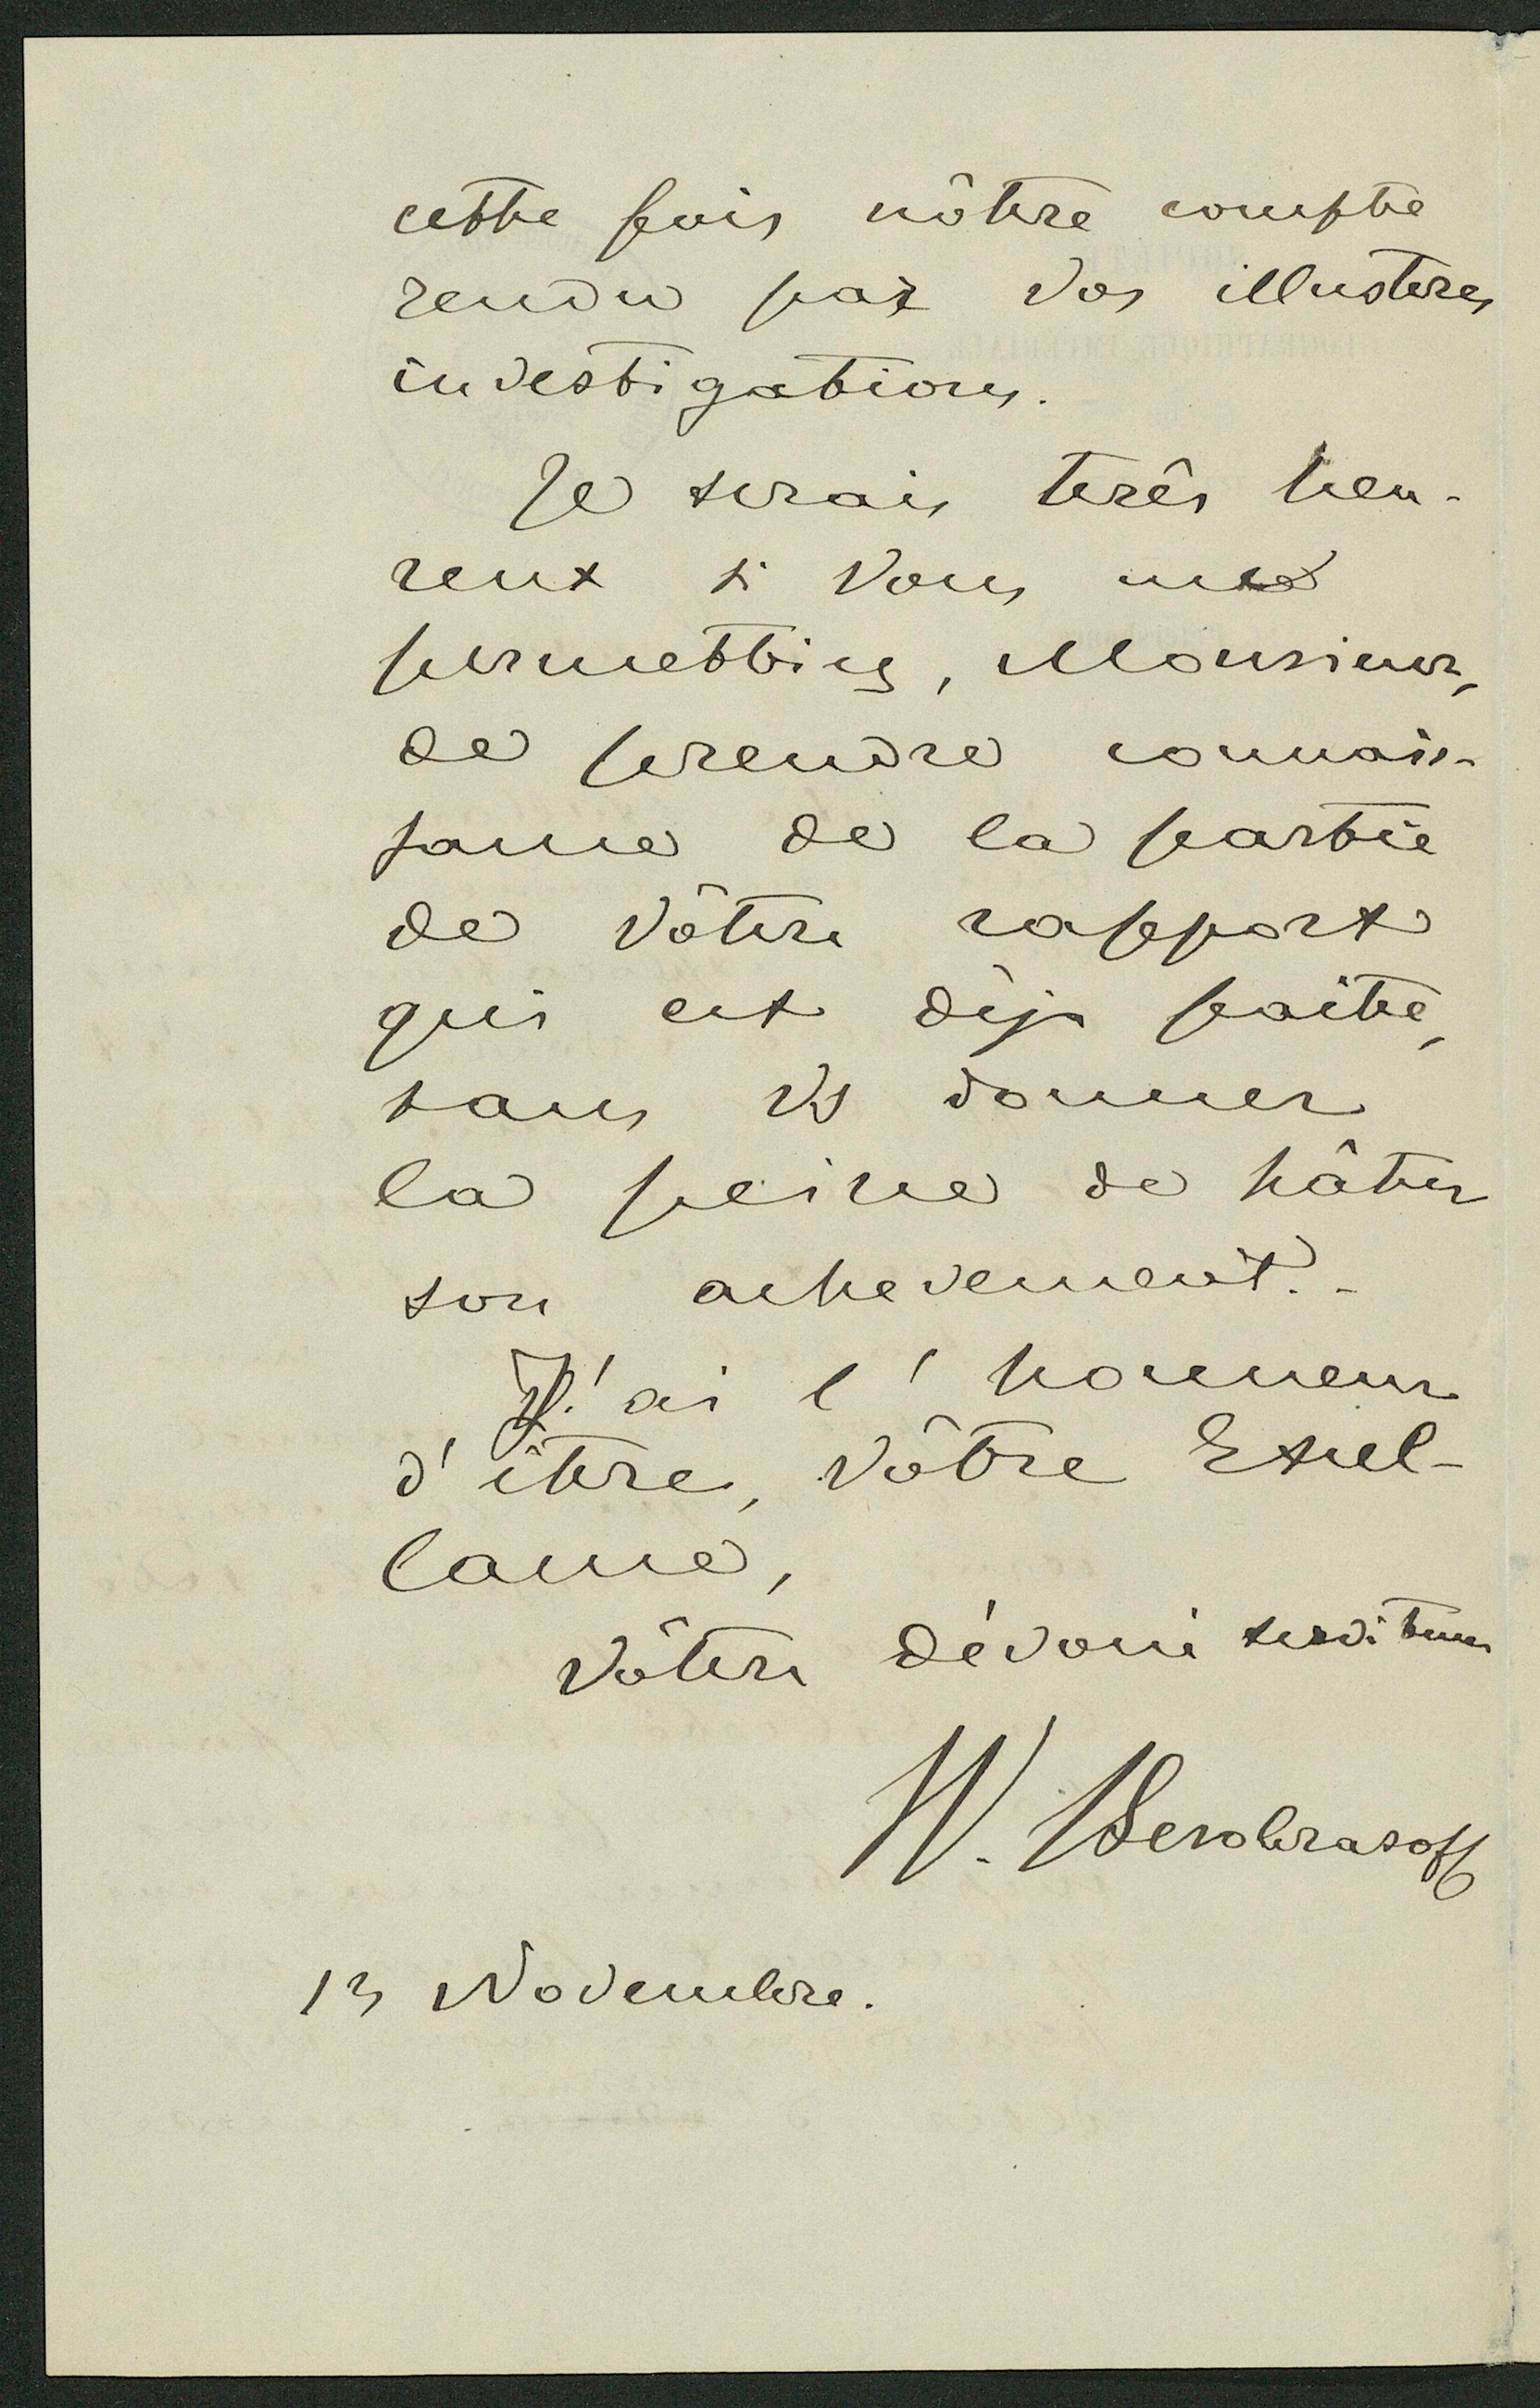 cette fois nôtre compte
rendu par vos illustres
investigations.
Je serais très heu-
reux si vous me
permettiez, Monsieur,
de prendre connais-
sance de la partie
de vôtre rapport
qui est déjà faite,
sans vs donner
la peine de hâter
son achevement.-
J'ai l'honneur
d'être, Vôtre Excel-
lance,
Vôtre dévoué serviteur
W. Besobrasoff
13 Novembre.